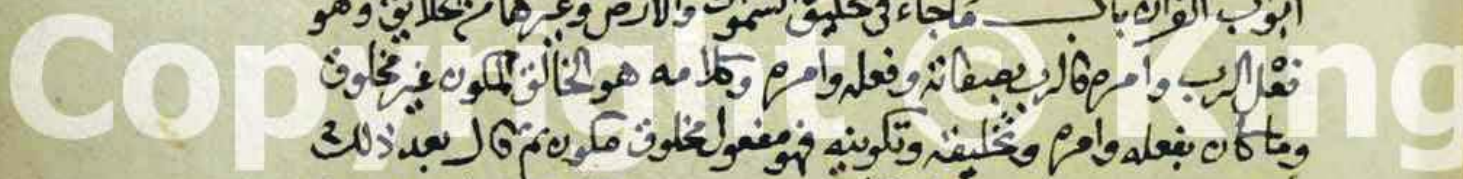 ابواب القران باب ما جاء في تخليق السموات والارض وغيرهما من الخلايق وهو
فعل الرب وامره فالرب بصفاته وفعله وامره وكلامه هو الخالق المكون غير مخلوق
وما كان بفعله وامره وتخليقه وتكوينه فهو مفعول مخلوق مكون ثم قال بعد ذلك
Copyright © King